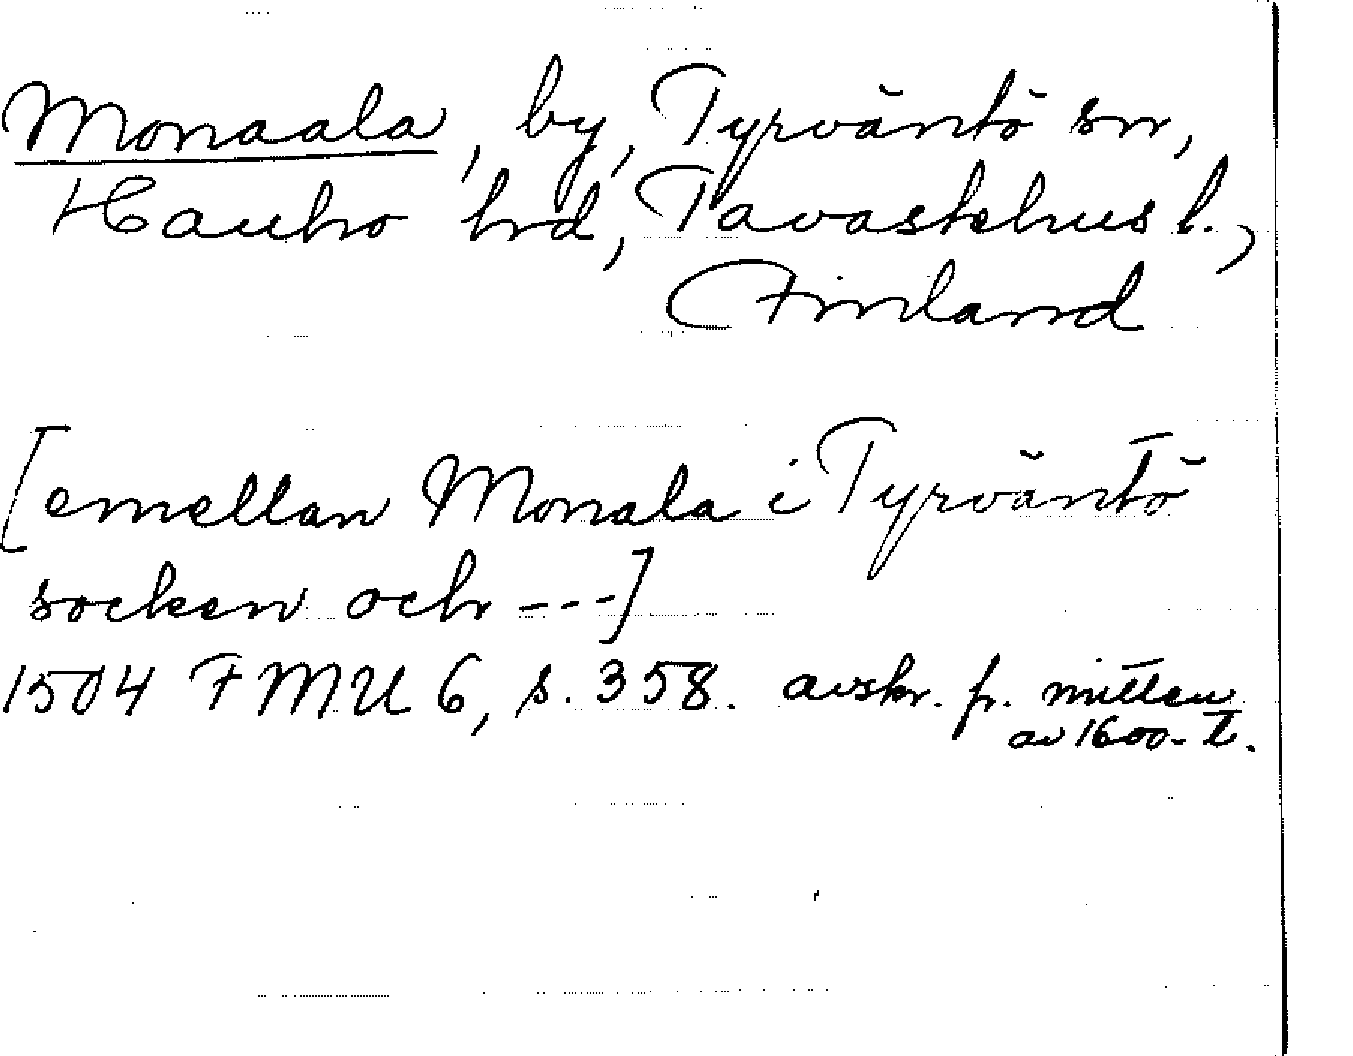 Monaala, by, Tyrväntö sn,
Hauho hrd, Tavastehus l.,
Finland
[emellan Monala i Tyrväntö
socken och ---]
1504 FMU 6, s. 358. avskr. fr. mitten
av 1600-t.